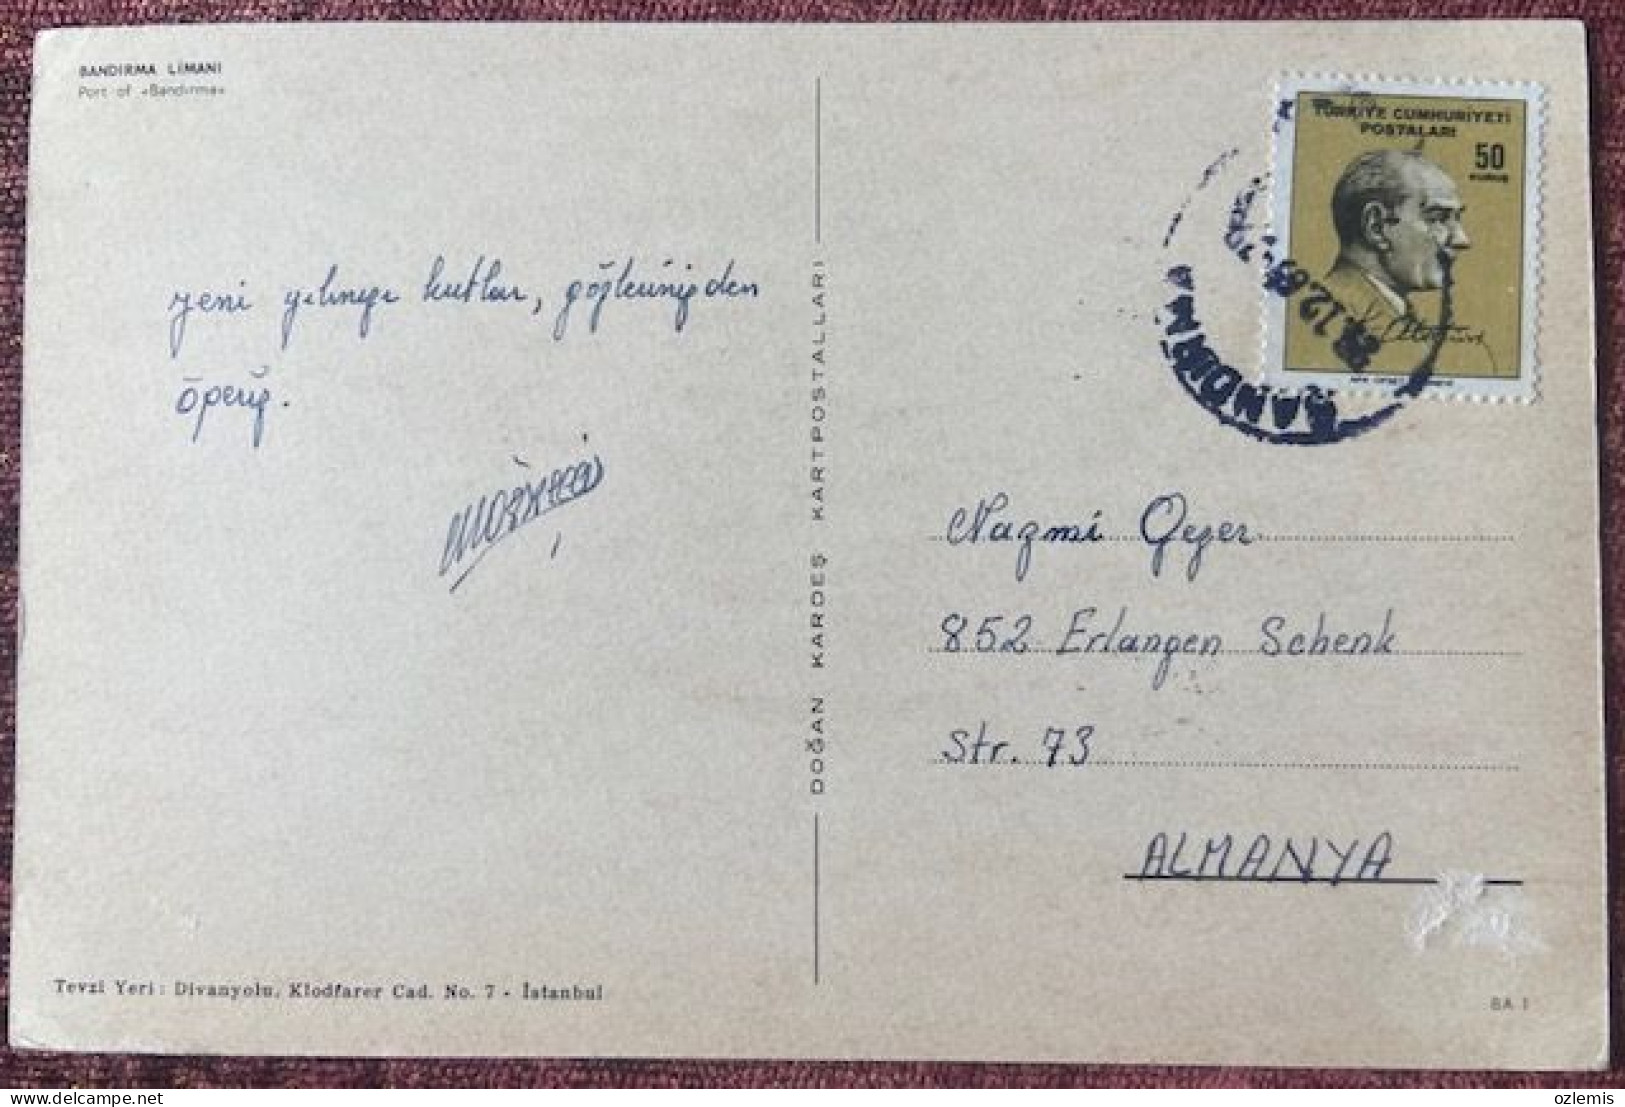 BANDIRMA LİMANI
Port of «Bandırma»
yeni yılınızı kutlar, gözlerinizden
öperiz.
DOĞAN KARDEŞ KARTPOSTALLARI
TÜRKİYE CUMHURİYETİ
POSTALARI
50
KURUŞ
K. Atatürk
BANDIRMA
Nazmi Gezer
852 Erlangen Schenk
Str. 73
ALMANYA
Tevzi Yeri: Divanyolu, Klodfarer Cad. No. 7 - İstanbul
BA 1
ozlemis